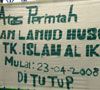 Atas Perintah
AN LANUD HUS
TK. ISLAM AL IK
Mulai: 23-04-2008
DI TUTUP